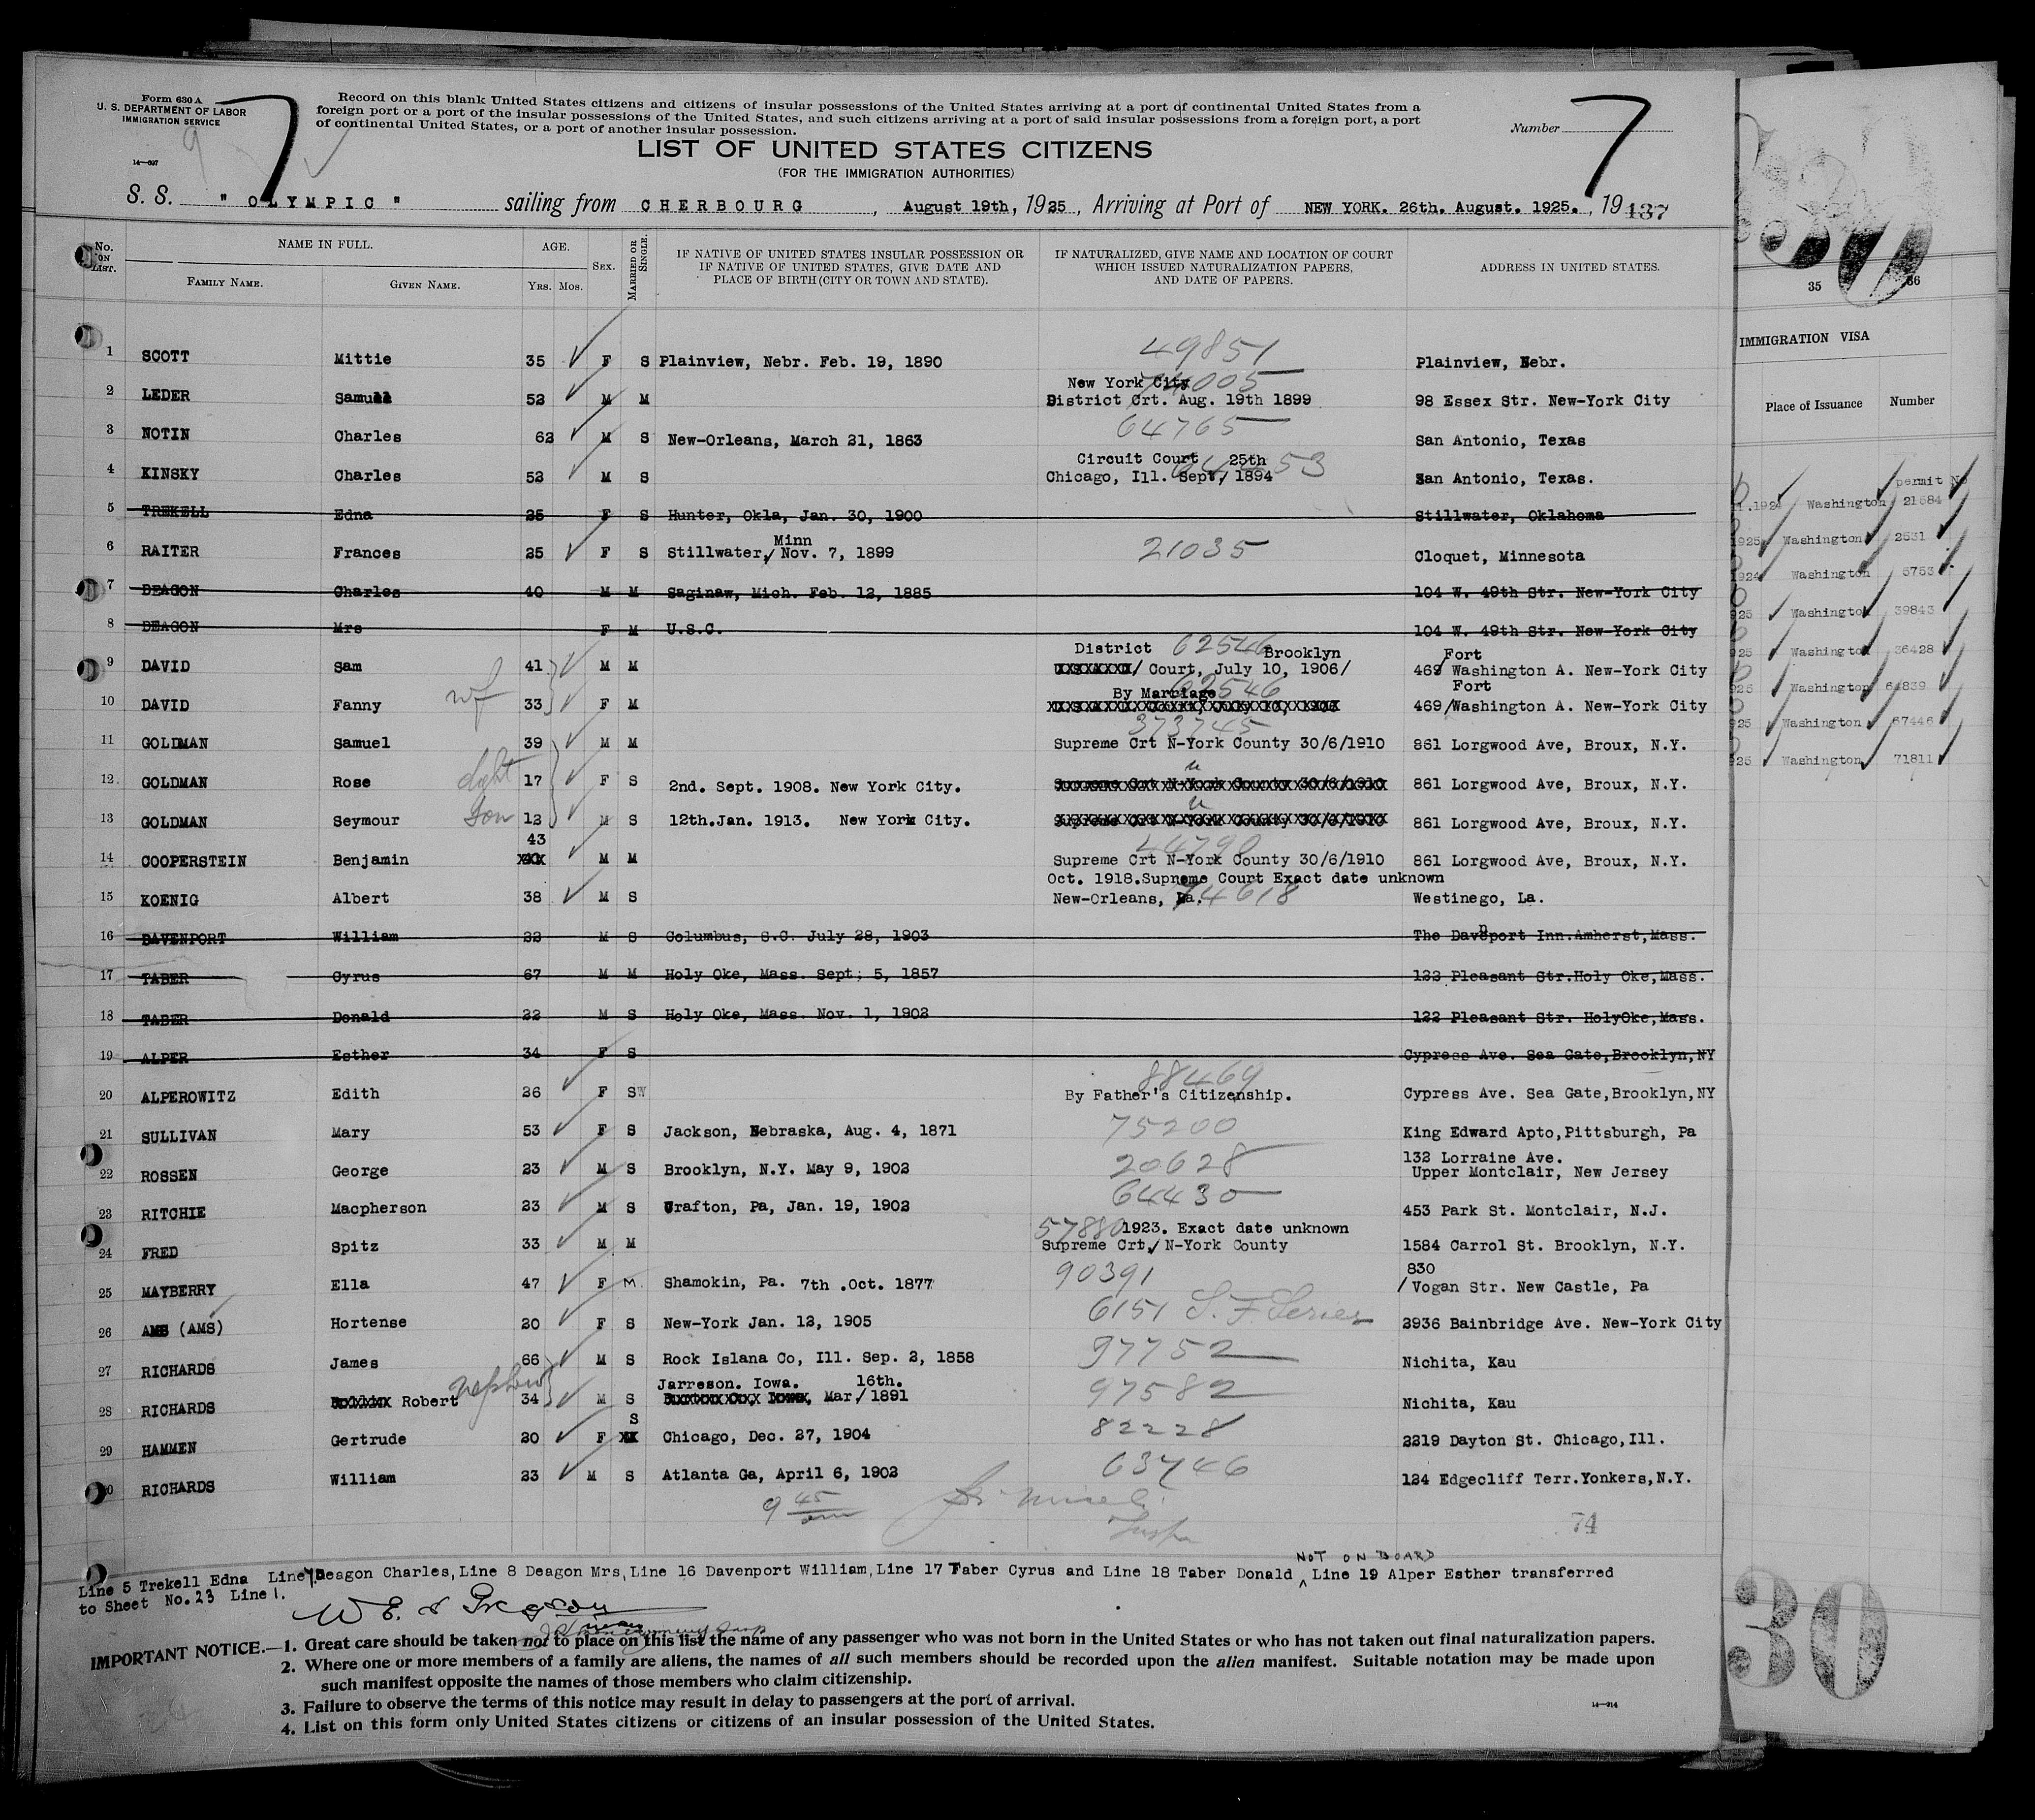 Form 630 A
U. S. DEPARTMENT OF LABOR
IMMIGRATION SERVICE
14—697
9
7
Record on this blank United States citizens and citizens of insular possessions of the United States arriving at a port of continental United States from a
foreign port or a port of the insular possessions of the United States, and such citizens arriving at a port of said insular possessions from a foreign port, a port
of continental United States, or a port of another insular possession.
Number 7
LIST OF UNITED STATES CITIZENS
(FOR THE IMMIGRATION AUTHORITIES)
S. S. " OLYMPIC " sailing from CHERBOURG, August 19th, 1925, Arriving at Port of NEW YORK. 26th. August. 1925., 19 137
No. ON LIST. NAME IN FULL. AGE. SEX. MARRIED OR SINGLE. IF NATIVE OF UNITED STATES INSULAR POSSESSION OR IF NATIVE OF UNITED STATES, GIVE DATE AND PLACE OF BIRTH (CITY OR TOWN AND STATE). IF NATURALIZED, GIVE NAME AND LOCATION OF COURT WHICH ISSUED NATURALIZATION PAPERS, AND DATE OF PAPERS. ADDRESS IN UNITED STATES.
FAMILY NAME. GIVEN NAME. YRS. MOS.
49851
1 SCOTT Mittie 35 F S Plainview, Nebr. Feb. 19, 1890 Plainview, Nebr.
New York City
2 LEDER Samuel 52 M M District Crt. Aug. 19th 1899 98 Essex Str. New-York City
64765
3 NOTIN Charles 62 M S New-Orleans, March 21, 1863 San Antonio, Texas
Circuit Court 25th
4 KINSKY Charles 52 M S Chicago, Ill. Sept/ 1894 San Antonio, Texas.
5 TREKELL Edna 25 F S Hunter, Okla, Jan. 30, 1900 Stillwater, Oklahoma
Minn
6 RAITER Frances 25 F S Stillwater/ Nov. 7, 1899 21035 Cloquet, Minnesota
7 DEACON Charles 40 M M Saginaw, Mich. Feb. 12, 1885 104 W. 49th Str. New-York City
8 DEAGON Mrs F M U.S.C. 104 W. 49th Str. New-York City
District 62546 Brooklyn Fort
9 DAVID Sam 41 M M / Court, July 10, 1906/ 469/ Washington A. New-York City
By Marriage 62546 Fort
10 DAVID Fanny wf 33 F M 469/Washington A. New-York City
373745
11 GOLDMAN Samuel 39 M M Supreme Crt N-York County 30/6/1910 861 Lorgwood Ave, Broux, N.Y.
12 GOLDMAN Rose dght 17 F S 2nd. Sept. 1908. New York City. Supreme Crt N-York County 30/6/1910 861 Lorgwood Ave, Broux, N.Y.
13 GOLDMAN Seymour son 12 M S 12th.Jan. 1913. New York City. Supreme Crt N-York County 30/6/1910 861 Lorgwood Ave, Broux, N.Y.
43
14 COOPERSTEIN Benjamin M M Supreme Crt N-York County 30/6/1910 861 Lorgwood Ave, Broux, N.Y.
Oct. 1918.Supreme Court Exact date unknown
15 KOENIG Albert 38 M S New-Orleans, La. 74618 Westinego, La.
16 DAVENPORT William 22 M S Columbus, S.C. July 28, 1903 The Davenport Inn.Amherst,Mass.
17 TABER Cyrus 67 M M Holy Oke, Mass. Sept; 5, 1857 122 Pleasant Str.Holy Oke,Mass.
18 TABER Donald 22 M S Holy Oke, Mass. Nov. 1, 1902 122 Pleasant Str. HolyOke,Mass.
19 ALPER Esther 34 F S Cypress Ave. Sea Gate,Brooklyn,NY
88469
20 ALPEROWITZ Edith 26 F SW By Father's Citizenship. Cypress Ave. Sea Gate,Brooklyn,NY
21 SULLIVAN Mary 53 F S Jackson, Nebraska, Aug. 4, 1871 75200 King Edward Apto,Pittsburgh, Pa
132 Lorraine Ave.
22 ROSSEN George 23 M S Brooklyn, N.Y. May 9, 1902 20628 Upper Montclair, New Jersey
23 RITCHIE Macpherson 23 M S Urafton, Pa, Jan. 19, 1902 64430 453 Park St. Montclair, N.J.
57880 1923. Exact date unknown
24 FRED Spitz 33 M M Supreme Crt/ N-York County 1584 Carrol St. Brooklyn, N.Y.
830
25 MAYBERRY Ella 47 F M. Shamokin, Pa. 7th .Oct. 1877 90391 /Vogan Str. New Castle, Pa
26 AMS (AMS) Hortense 20 F S New-York Jan. 12, 1905 6151 S. F. Series 2936 Bainbridge Ave. New-York City
27 RICHARDS James 66 M S Rock Islana Co, Ill. Sep. 2, 1858 97752 Nichita, Kau
Jarreson. Iowa. 16th.
28 RICHARDS Robert nephew 34 M S Mar/ 1891 97582 Nichita, Kau
S
29 HAMMEN Gertrude 20 F Chicago, Dec. 27, 1904 82228 2219 Dayton St. Chicago,Ill.
30 RICHARDS William 23 M S Atlanta Ga, April 6, 1902 63746 124 Edgecliff Terr.Yonkers,N.Y.
9 45 am
74
NOT ON BOARD
Line 5 Trekell Edna Line 7 Deagon Charles, Line 8 Deagon Mrs, Line 16 Davenport William, Line 17 Taber Cyrus and Line 18 Taber Donald ^ Line 19 Alper Esther transferred
to Sheet No.23 Line 1.
IMPORTANT NOTICE.—1. Great care should be taken not to place on this list the name of any passenger who was not born in the United States or who has not taken out final naturalization papers.
2. Where one or more members of a family are aliens, the names of all such members should be recorded upon the alien manifest. Suitable notation may be made upon
such manifest opposite the names of those members who claim citizenship.
3. Failure to observe the terms of this notice may result in delay to passengers at the port of arrival.
4. List on this form only United States citizens or citizens of an insular possession of the United States.
14—214
35 36
IMMIGRATION VISA
Place of Issuance Number
permit No
1924 Washington 21684
1925 Washington 2531
1924 Washington 6753
925 Washington 39843
925 Washington 36428
925 Washington 64839
925 Washington 67446
925 Washington 71811
30